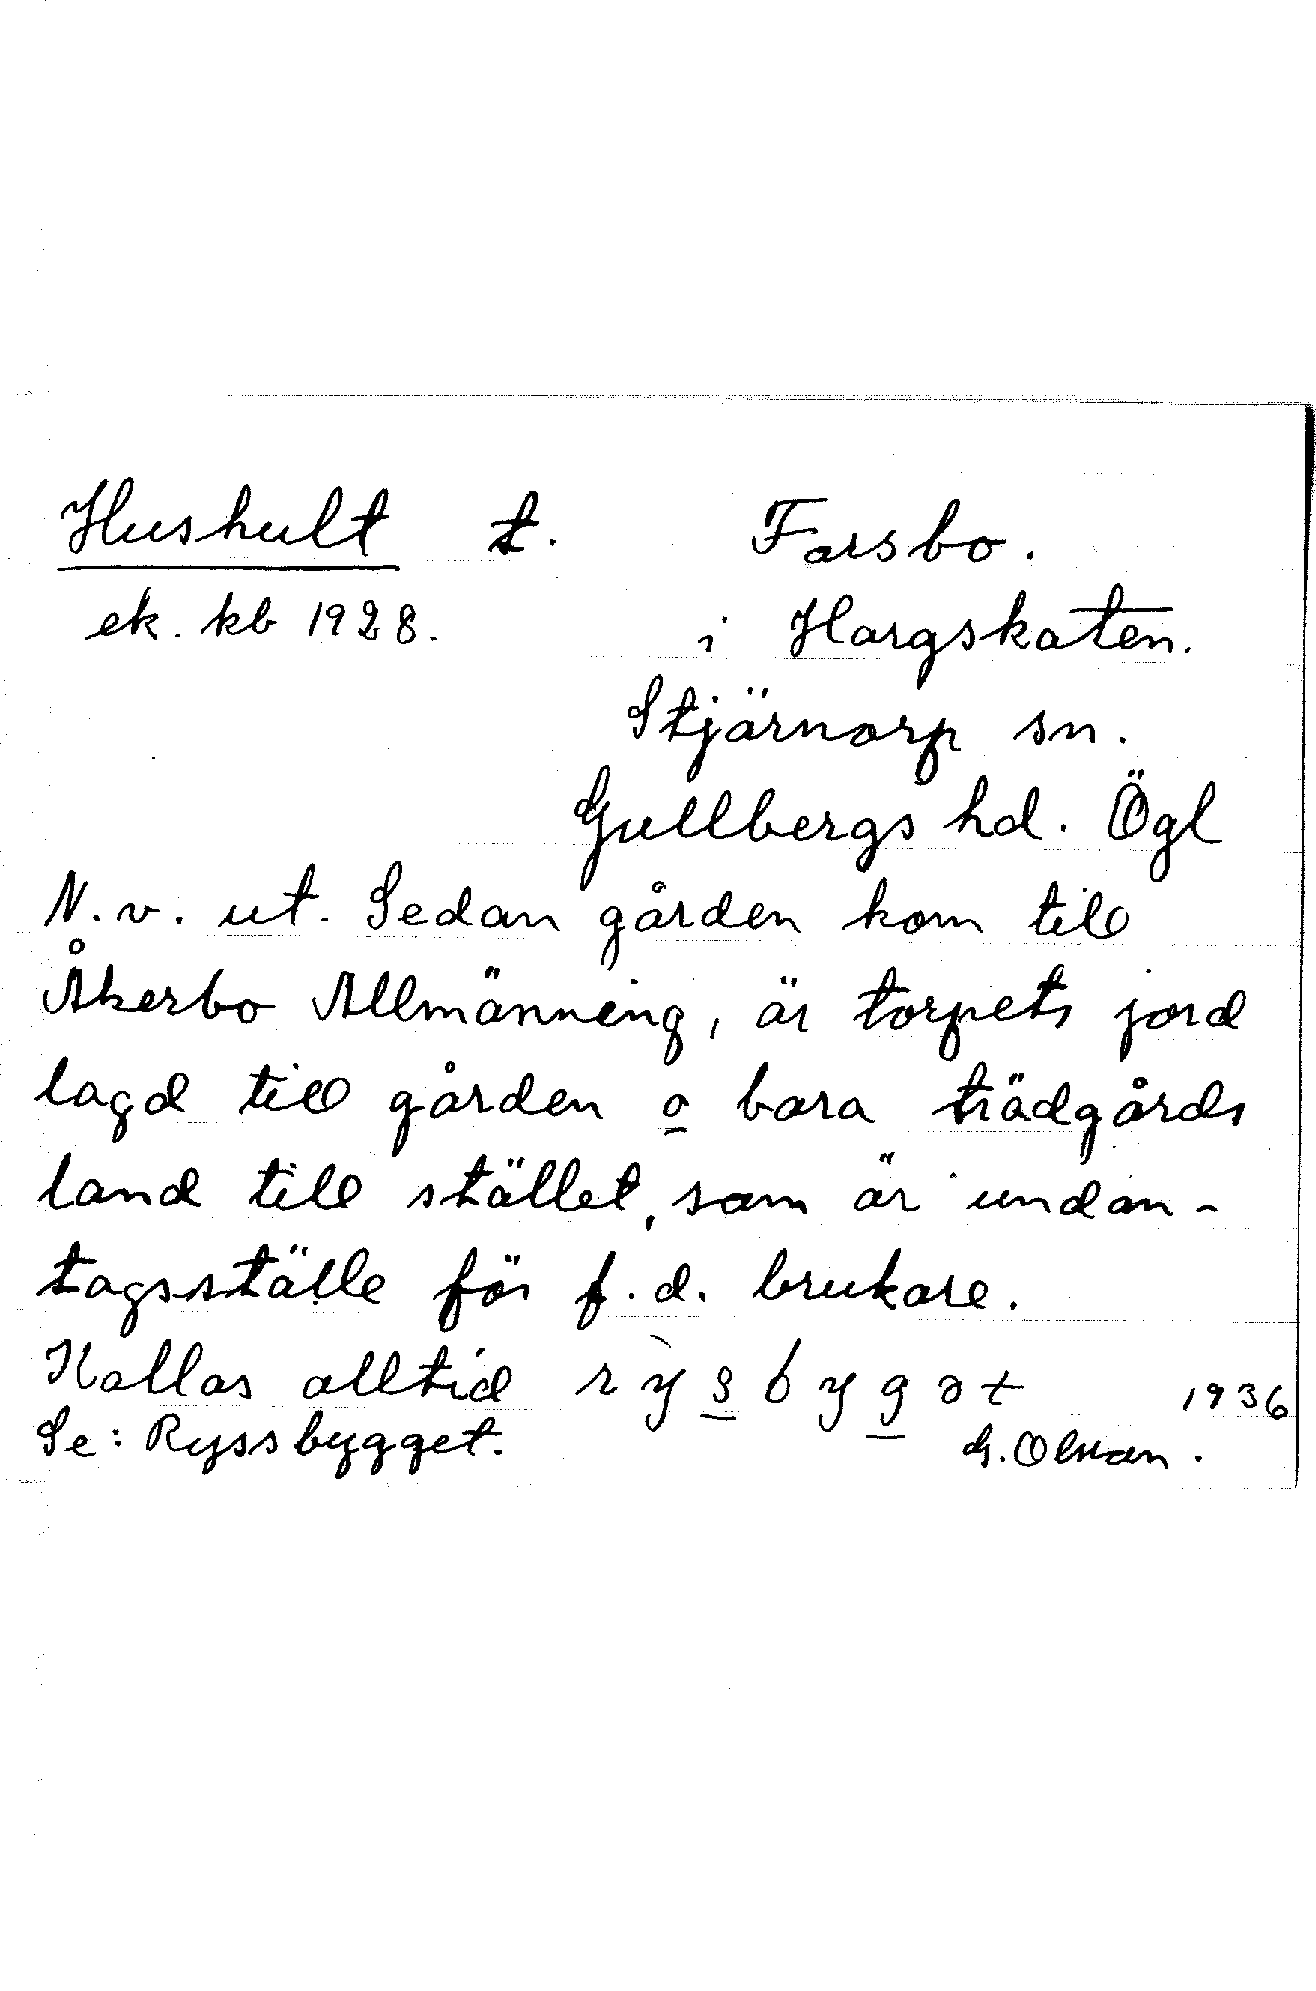 Hushult t. Farsbo.
ek. kb 1928. i Hargskaten.
Stjärnorp sn.
Gullbergs hd. Ögl
N. v. ut. Sedan gården kom till
Åkerbo Allmänning, är torpets jord
lagd till gården o bara trädgårds
land till stället, som är undan-
tagsställe för f.d. brukare.
Kallas alltid rỳsbygət 1936
Se: Ryssbygget. G. Olsson.